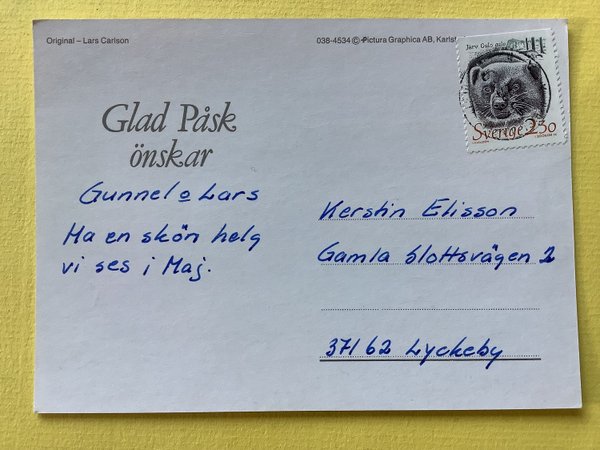 Original – Lars Carlson
038-4534 © Pictura Graphica AB, Karlst
Järv Gulo gulo
Sverige 2.30
Glad Påsk
önskar
Gunnel o Lars
Ha en skön helg
vi ses i Maj.
Kerstin Elisson
Gamla Slottsvägen 2
37162 Lyckeby